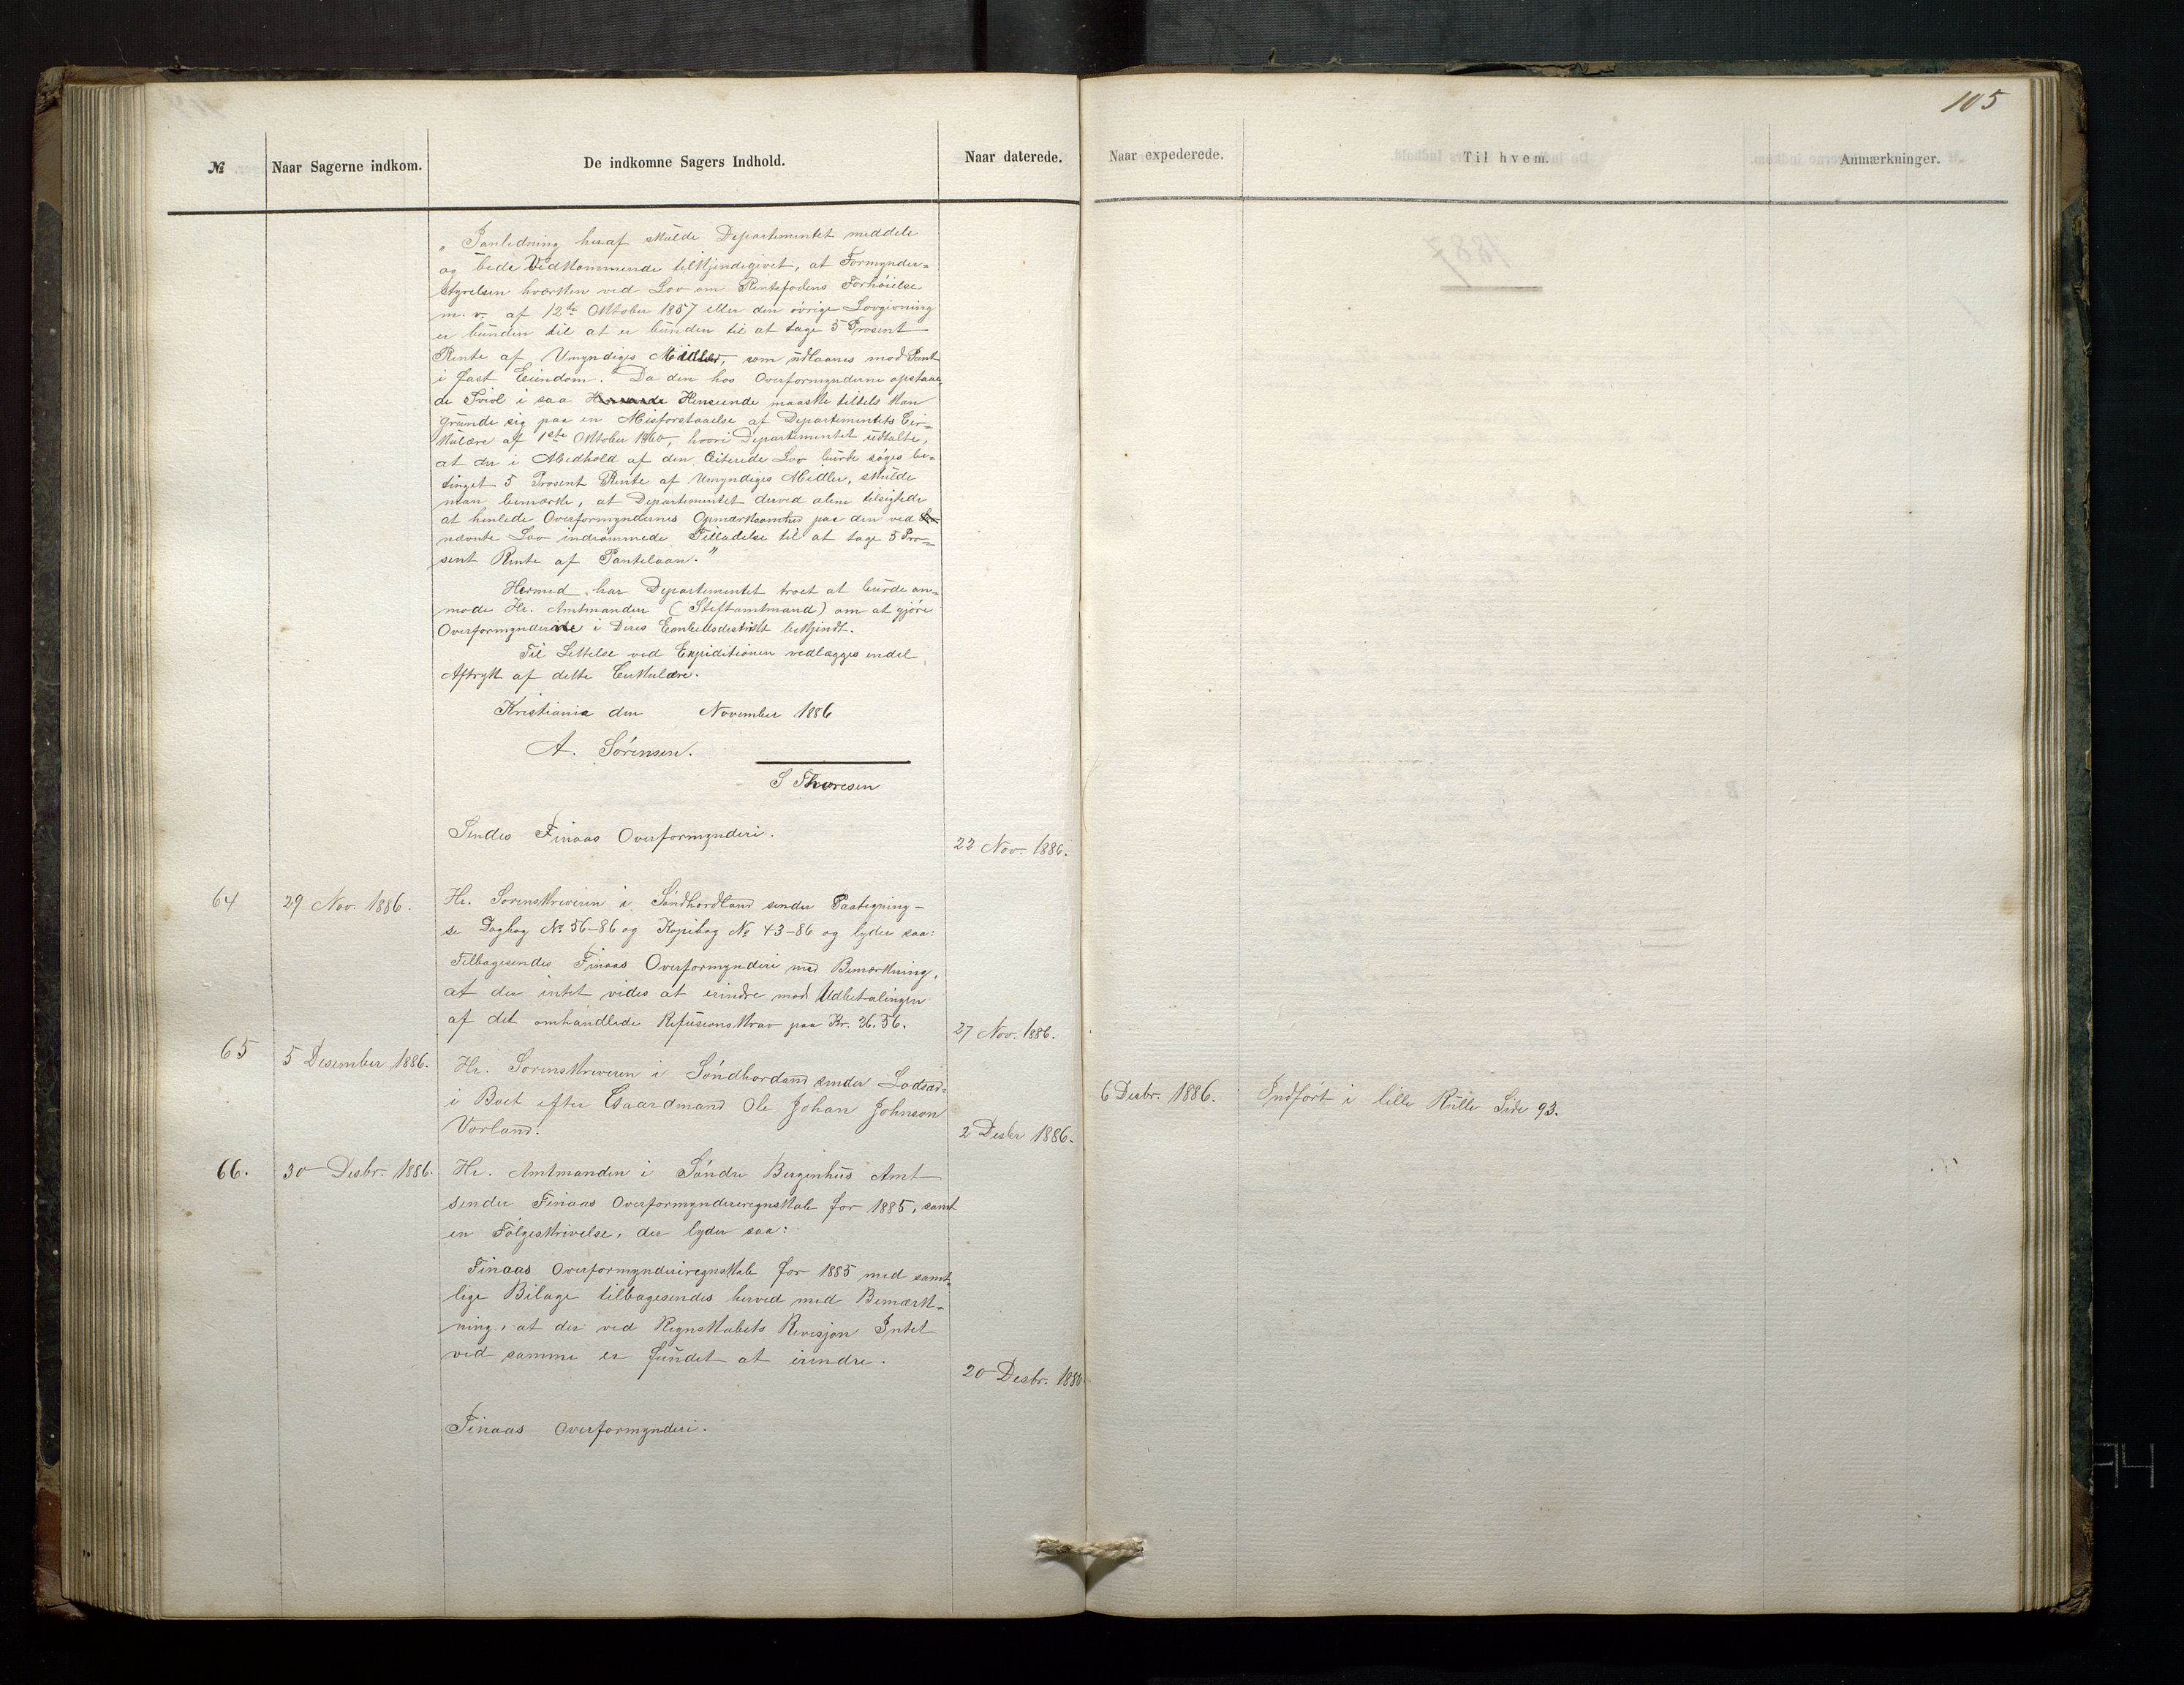 105
№
Naar Sagerne indkom.
De indkomne Sagers Indhold.
Naar daterede.
Naar expederede.
Til hvem.
Anmærkninger.
„I anledning heraf skulde Departementet meddele
og bede Vedkommende tilkjendegivet, at Formynder-
styrelsen hverken ved Lov om Rentefodens Forhøielse
m. v. af 12te Oktober 1857 eller den øvrige Lovgivning
er bunden til at er bunden til at tage 5 Prosent
Rente af Umyndiges Midler, som udlaanes mod Pant
i fast Eiendom. Da den hos Overformynderne opstaae-
de Tviol i saa Henseende maaske tildels kan
grunde sig paa en Misforstaaelse af Departementets Cir-
kulære af 1ste Oktober 1860, hvori Departementet udtalte,
at der i Medhold af den citerede Lov burde søges be-
tinget 5 Prosent Rente af Umyndiges Midler, skulde
man bemærke, at Departementet derved alene tilsigtede
at henlede Overformyndernes Opmærksomhed paa den ved
nævnte Lov indrømmede Tilladelse til at tage 5 Pro-
sent Rente af Pantelaan."
Hermed har Departementet troet at burde an-
mode Hr. Amtmanden (Stiftamtmand) om at gjøre
Overformynderne i Deres Embedsdistrikt bekjendt.
Til Lettelse ved Expeditionen vedlægges endel
Aftryk af dette Cirkulære.
Kristiania den November 1886
A. Sørensen.
S Thoresen
Sendes Finaas Overformynderi.
22 Nov. 1886.
64
29 Nov. 1886.
Hr. Sorenskriveren i Søndhordland sender Pastegning-
se Dagbog № 56-86 og Kopibog № 43-86 og lyder saa:
Tilbagesendes Finaas Overformynderi med Bemærkning,
at der intet vides at erindre mod Udbetalingen
af det omhandlede Refusionskrav paa Kr. 36.36.
27 Nov. 1886.
65
5 Desember 1886.
Hr. Sorenskriveren i Søndhordland sender Lodsed-
i Boet efter Gaardmand Ole Johan Johnson
Vorland.
2 Desbr 1886.
6 Desbr. 1886.
Indført i lille Rulle Side 93.
66.
30 Desbr. 1886.
Hr. Amtmanden i Søndre Bergenhus Amt
sender Finaas Overformynderiregnskab for 1885, samt
en Følgeskrivelse, der lyder saa:
Finaas Overformynderiregnskab for 1885 med samt-
lige Bilage tilbagesendes herved med Bemærk-
ning, at der ved Regnskabets Revisjon Intet
ved samme er fundet at erindre.
20 Desbr. 1886
Finaas Overformynderi.